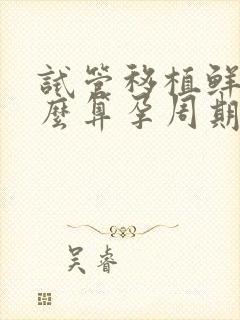 试管移植鲜
麽算孕周期
吴睿